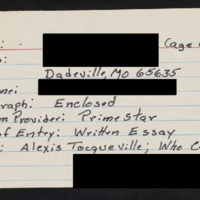 : (age
:
Dadeville, MO 65635
ne:
raph: Enclosed
m Provider: Primestar
of Entry: Written Essay
: Alexis Tocqueville; Who C